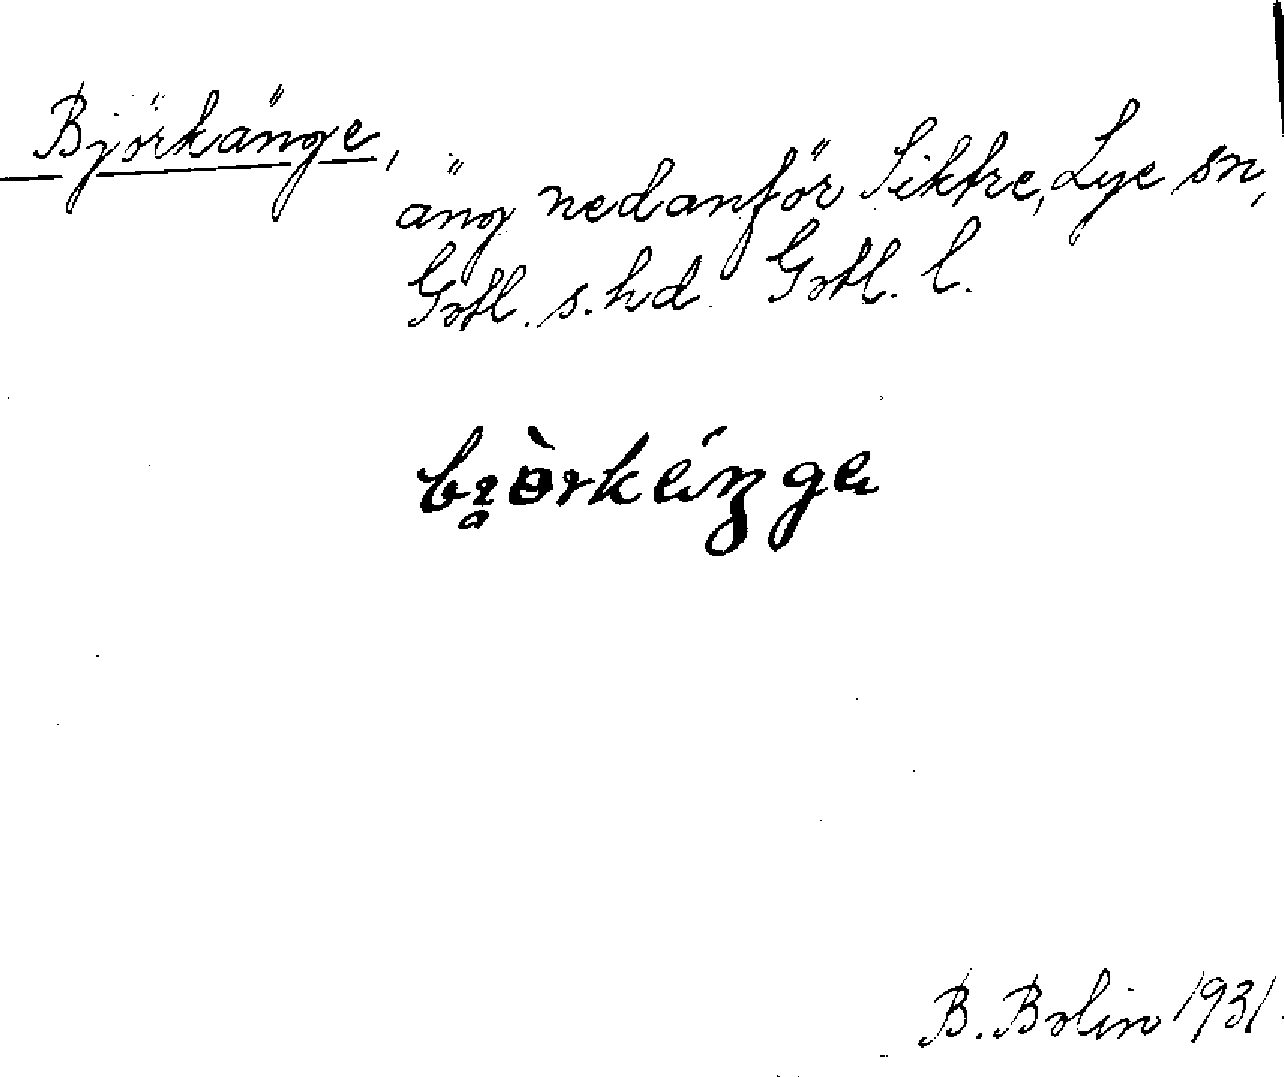 Björkänge,
äng nedanför Sikkre, Lye sn,
Gotl. s. hd Gotl. l.
B. Bolin 1931.